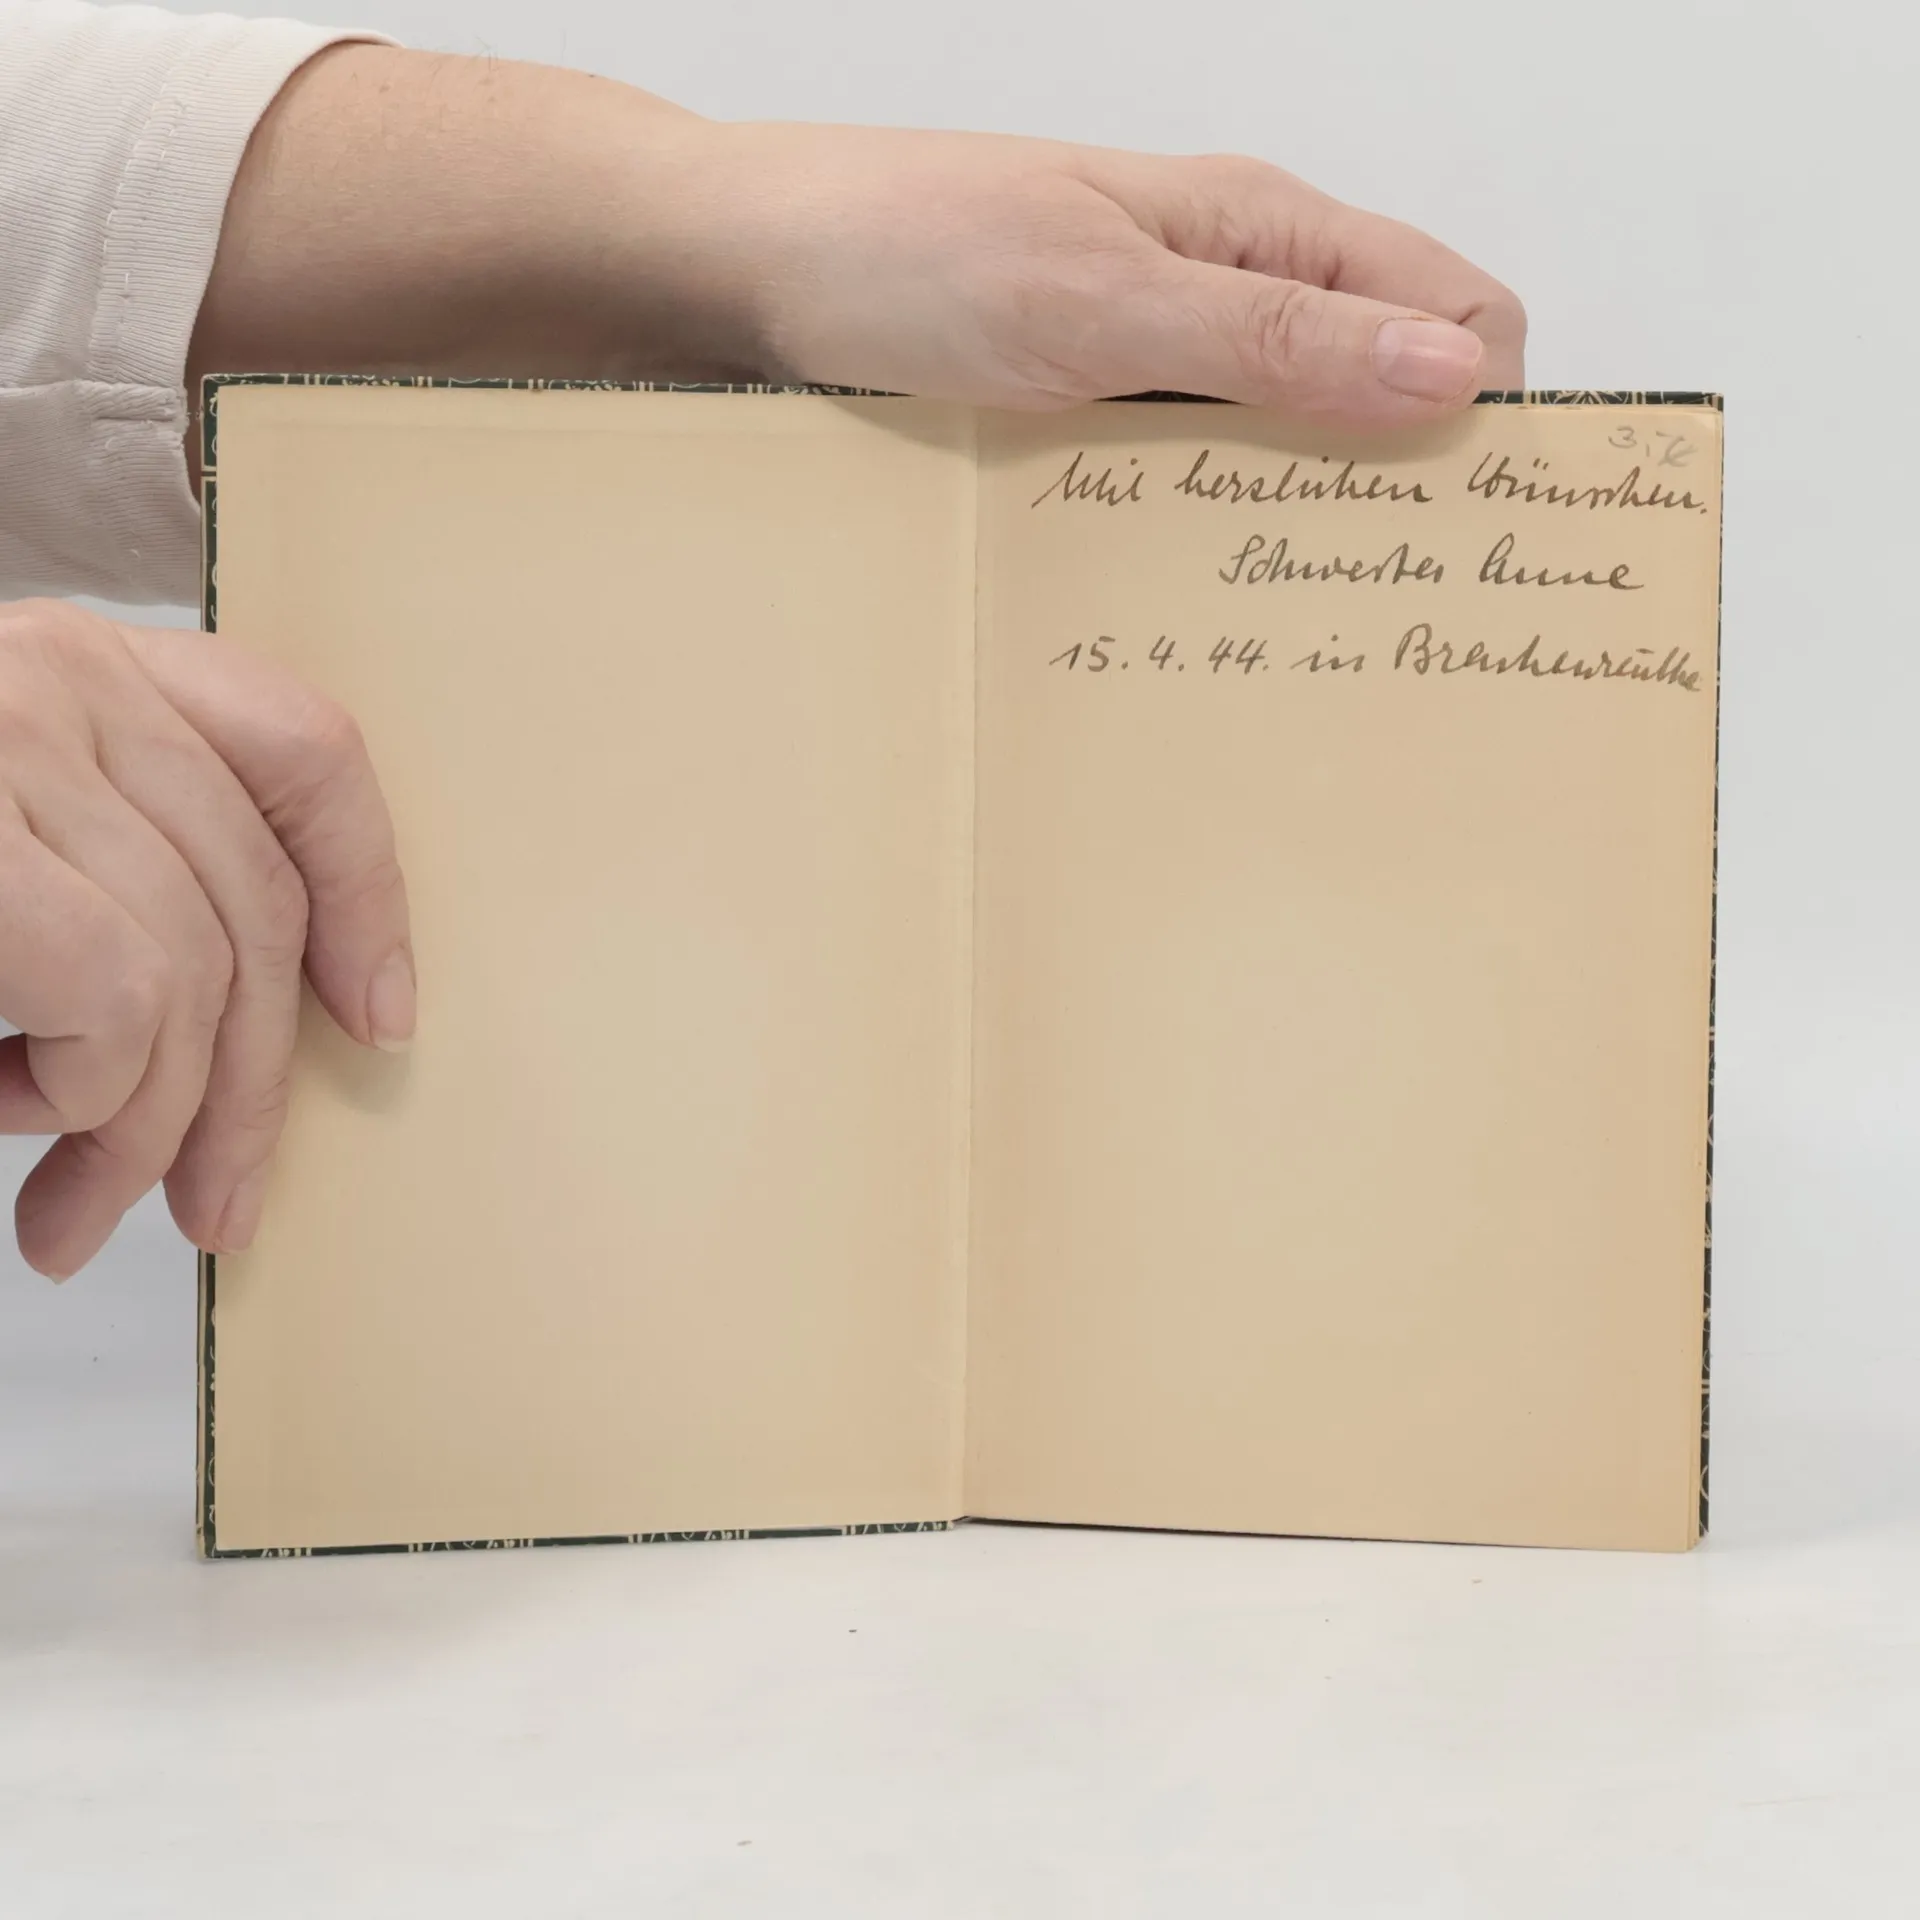 3,-€
Mit herzlichen Wünschen.
Schwester Anne
15. 4. 44. in Brachenreuthe